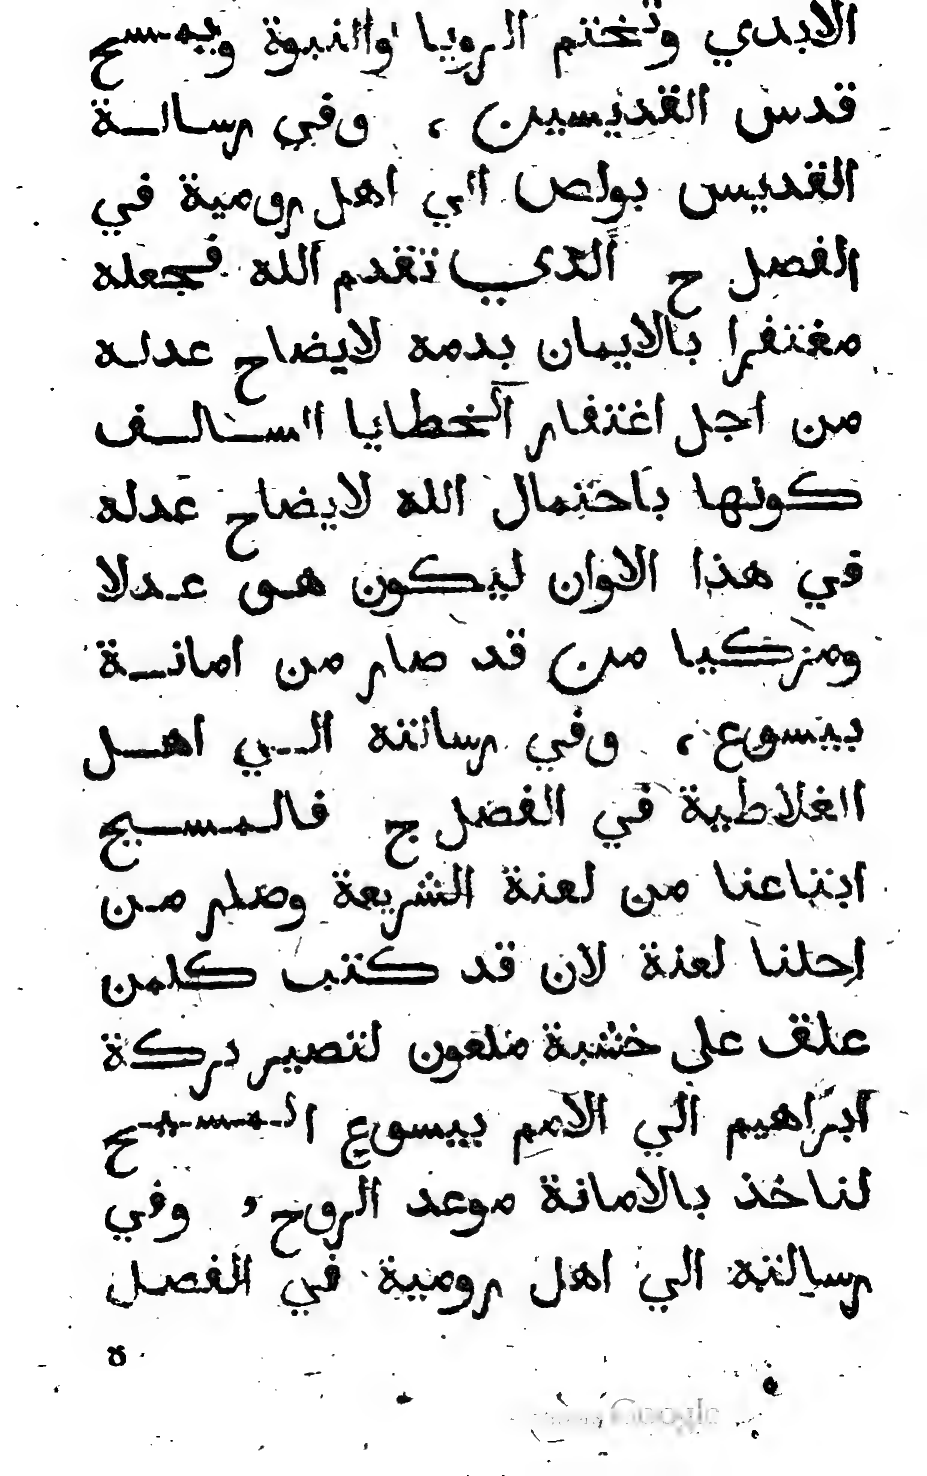 الابدي وتختم الرويا والنبوة ويمسح
قدس القديسين ، وفي رسالة
القديس بولص الي اهل رومية في
الفصل ح الذي تقدم الله فجعله
مغتفرا بالايمان بدمه لايضاح عدله
من اجل اغتفار الخطايا السالف
كونها باحتمال الله لايضاح عدله
في هذا الاوان ليكون هو عدلا
ومزكيا من قد صار من امانة
بيسوع ، وفي رسالته الي اهل
الغلاطية في الفصل ج فالمسيح
ابتاعنا من لعنة الشريعة وصار من
اجلنا لعنة لان قد كتب كلمن
علق على خشبة ملعون لتصير بركة
ابراهيم الي الامم بيسوع المسيح
لناخذ بالامانة موعد الروح ، وفي
رسالته الي اهل رومية في الفصل
ة
Google